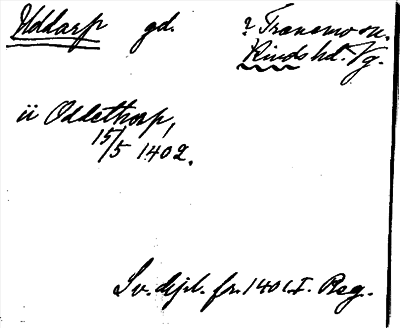 Uddarp gd. ? Tranemo sn.
Kinds hd. Vg.
ii Oddethorp,
15/5 1402.
Sv. dipl. fr. 1401. I. Reg.